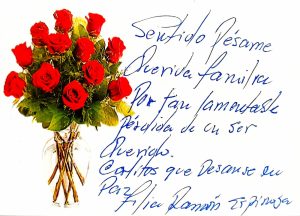 Sentido Pésame
Querida familia
Por tan lamentable
pérdida de un ser
Querido.
Carlitos que Descanse en
Paz
Filia Ramón Espinoza